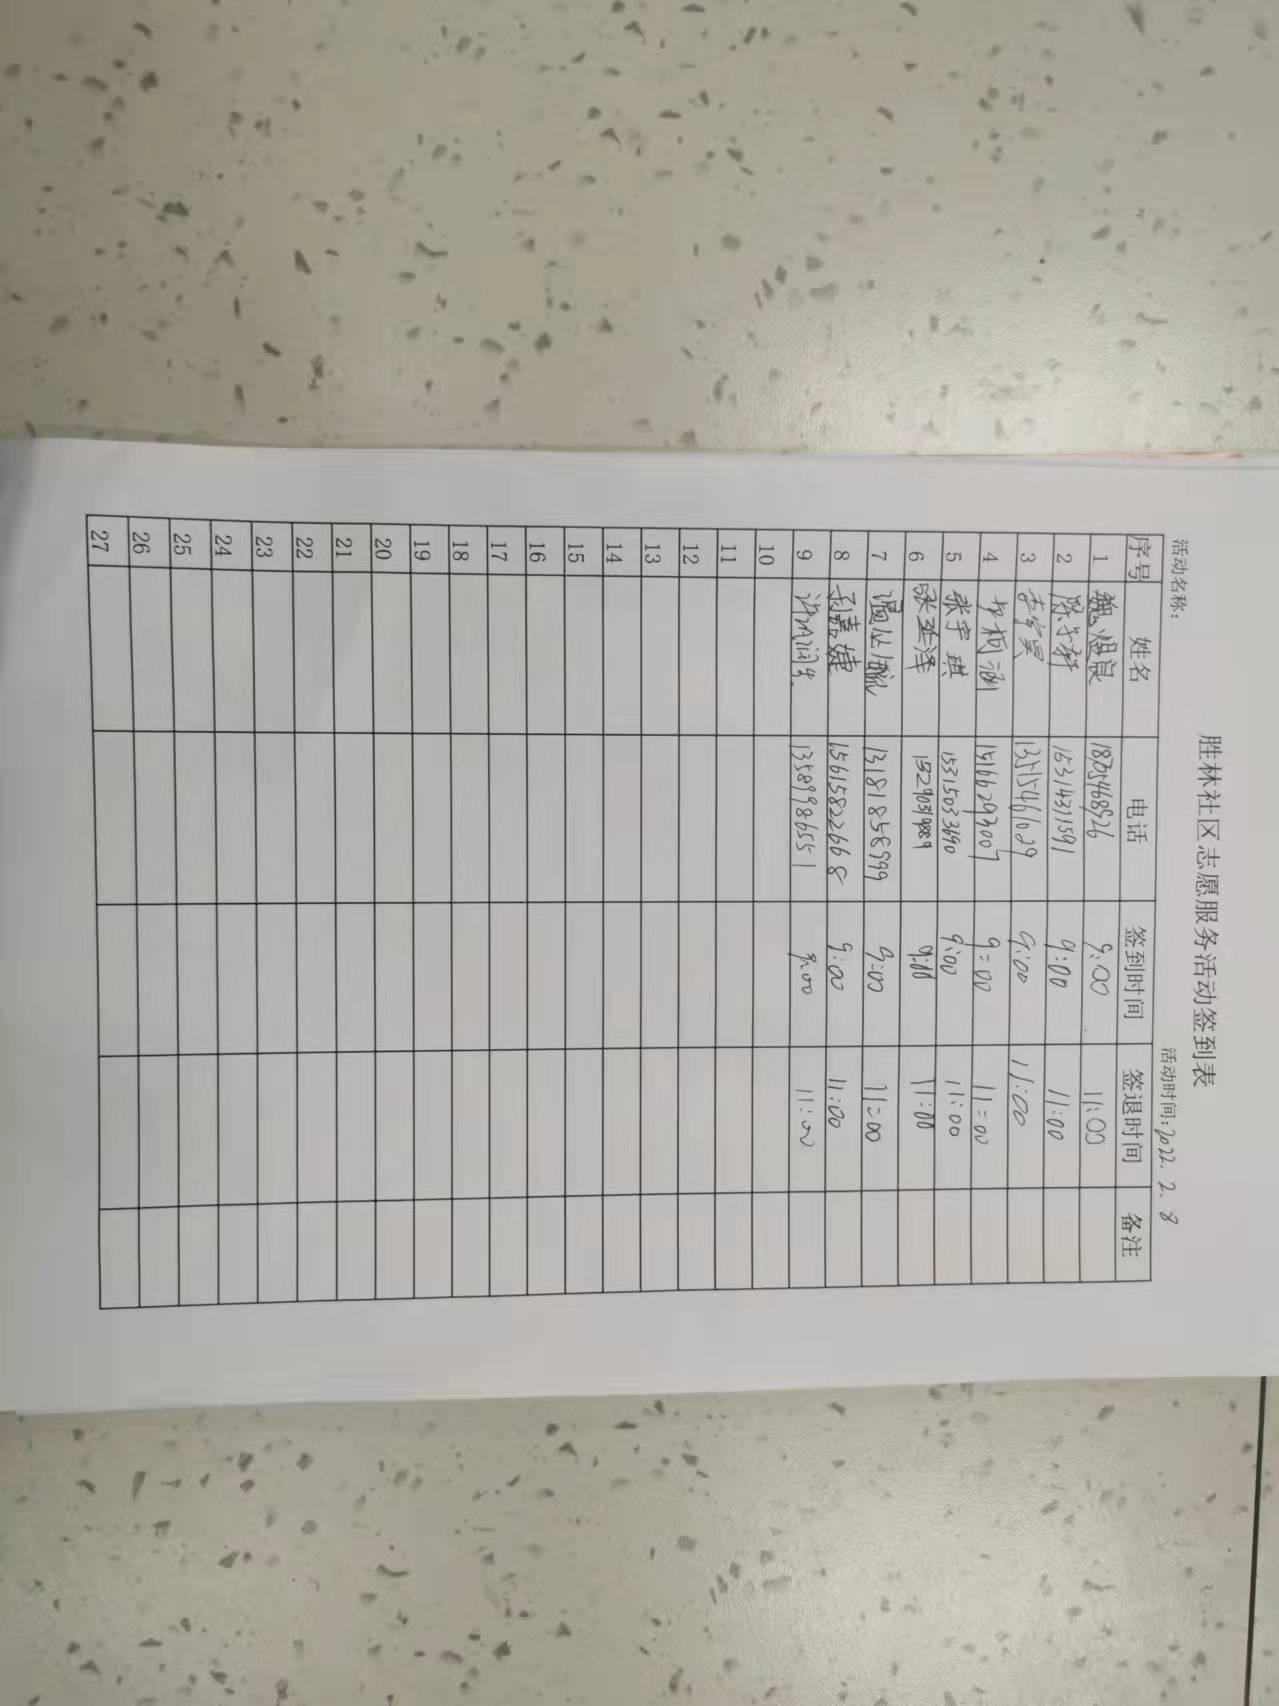 胜林社区志愿服务活动签到表
活动名称: 活动时间:2022.2.8
序号 姓名 电话 签到时间 签退时间 备注
1 9:00 11:00
2 15314371591 9:00 11:00
3 13515461029 9:00 11:00
4 15166293007 9:00 11:00
5 张宇琪 15315033690 9:00 11:00
6 张延泽 9:00 11:00
7 13181858999 9:00 11:00
8 孙嘉婕 15615822668 9:00 11:00
9 13589986551 9:00 11:00
10
11
12
13
14
15
16
17
18
19
20
21
22
23
24
25
26
27